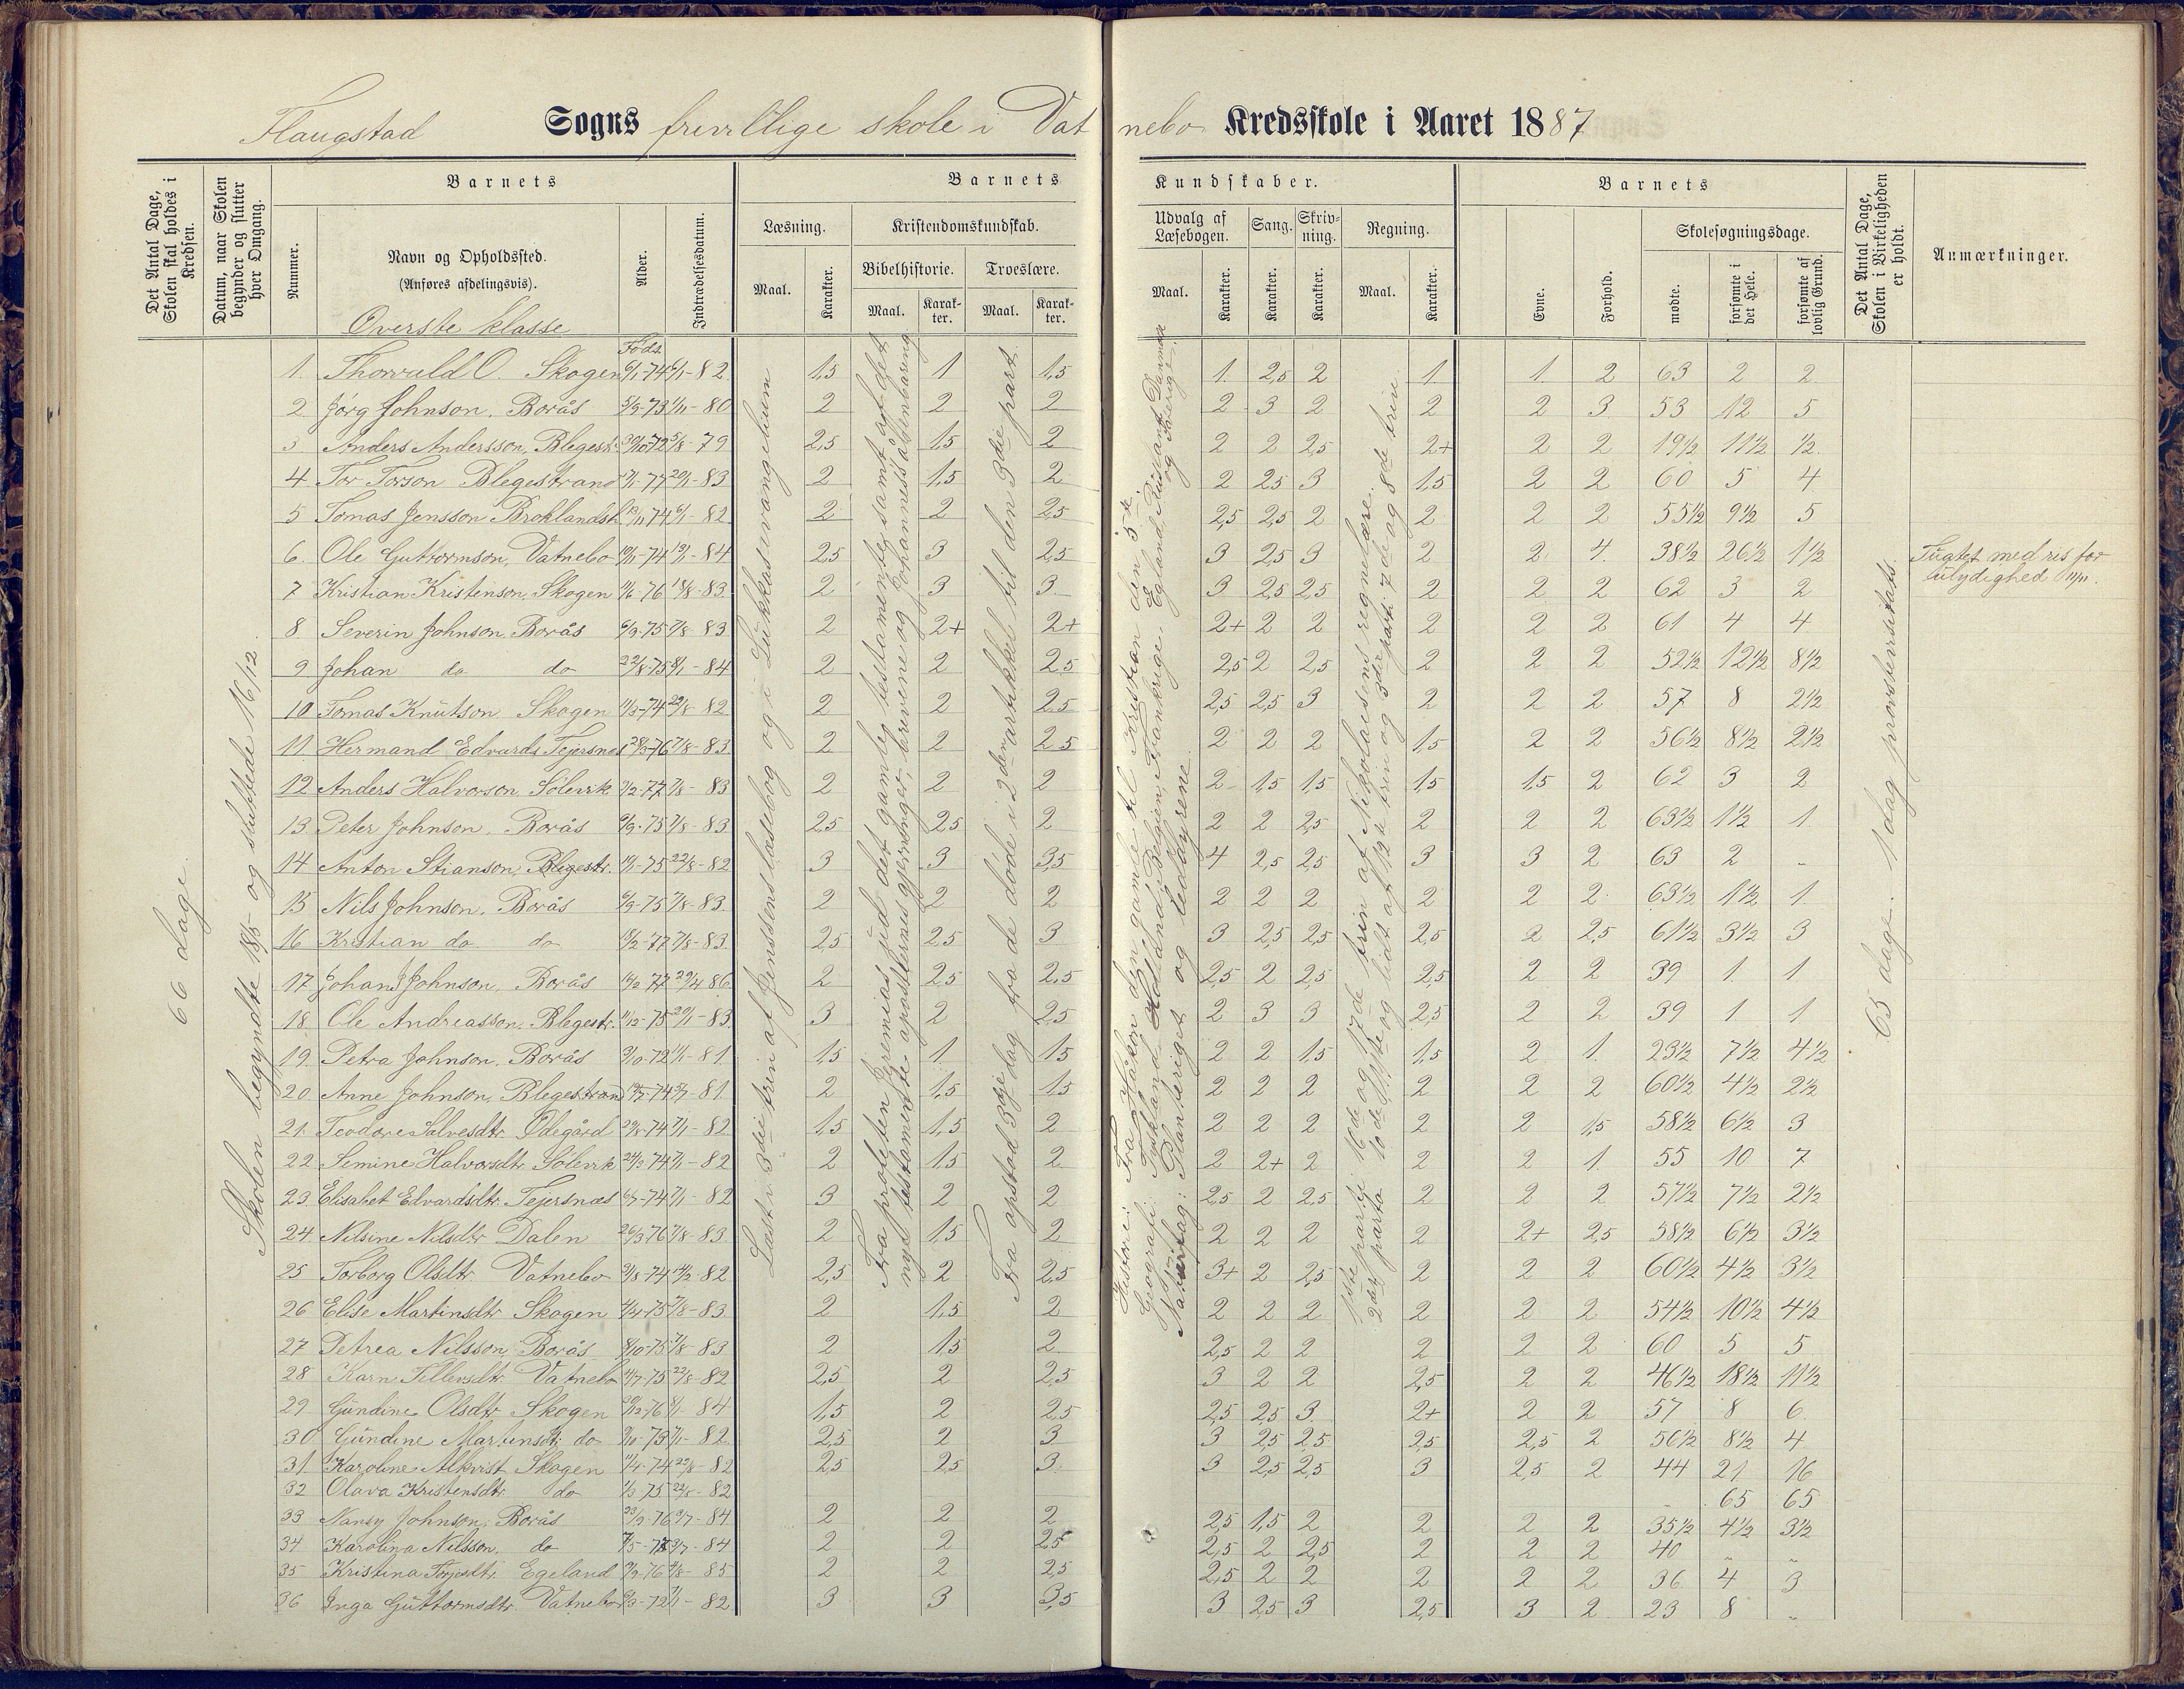 Flaugstad Sogns frivillige skole i Vatnebo Kredsskole i Aaret 1887
Det Antal Dage, Skolen skal holdes i Kredsen.
Datum, naar Skolen begynder og slutter hver Omgang.
Barnets
Nummer.
Navn og Opholdssted.
(Anføres afdelingsvis).
Overste klasse
Alder.
Indtrædelsesdatum.
Barnets Kundskaber.
Læsning. Maal. Karakter.
Kristendomskundskab.
Bibelhistorie. Maal. Karakter.
Troeslære. Maal. Karakter.
Udvalg af Læsebogen. Maal. Karakter.
Sang. Karakter.
Skrivning. Karakter.
Regning. Maal. Karakter.
Barnets
Evne. Forhold.
Skolesøgningsdage.
mødte. forsømte i det Hele. forsømte af lovlig Grund.
Det Antal Dage, Skolen i Virkeligheden er holdt.
Anmærkninger.
66 dage.
Skolen begyndte 18/5 og sluttede 16/12
Læst i 3die trin af Jenssens læsebog og i Lukkas evangelium
Fra profeten Jeremias i det gamle testamente samt af det
nye testamente apostlernes gjerninger, brevene og Johannes's åbenbaring
Fra opstod 3dje dag fra de døde i 2den artikkel til den 3die part.
Historie: Fra Håkon den gamle til Kristian den 5te.
Geografi: Tyskland, Holland, Belgien, Frankrige, England, Rusland, Danmark og Sverige.
Naturfag: Planteriget og leddyrene
1ste parti: 16de og 17de trin af Nikolaisens regnelære.
65 dage. 1 dag provstevisitats.
Født
1. Thorvald O. Skogen 6/1-74 6/1-82. 1,5 1 1,5 1. 2,5 2 1. 1. 2 63 2 2
2 Jörg Johnson. Borås 5/9-73 1/11-80 2 2 2 2 3 2 2 2 3 53 12 5
3 Anders Andersson, Blegestr. 30/10-72 5/8-79 2,5 1,5 2 2 2 2,5 2+ 2 2 19½ 11½ ½
4 Tor Torson Blegestrand 20/1-83 2 1,5 2 2 2,5 3 1,5 2 2 60 5 4
5 Tomas Jensson Broklandsh. 6/1-82 2 2 2,5 2,5 2,5 2 2 2 2 55½ 9½ 5
6. Ole Guttormson, Vatnebo 2,5 3 2,5 3 2,5 3 2 2 4. 38½ 26½ 1½ Tugtet med ris for ulydighed 11/11.
7 Kristian Kristenson, Skogen 11/6-76 18/8-83. 2 3 3. 3 2,5 2,5 2 2 2 62 3 2
8. Severin Johnson. Borås 6/9-75 7/8-83. 2 2+ 2+ 2+ 2 2 2 2 2 61 4 4
9 Johan do do 22/8-75 8/1-84 2 2 2,5 2,5 2 2,5 2 2 2 52½ 12½ 8½
10 Tomas Knutson Skogen 11/3-74 22/8-82 2 2 2,5 2,5 2,5 3 2 2 2 57 8 2½
11. Hermand Edvards. Tejersnes 7/8-83. 2 2 2,5 2 2 2 1,5 2 2 56½ 8½ 2½
12 Anders Halvorson Sölevik 7/8-83 2 2 2 2 1,5 1,5 1,5 1,5 2 62 3 2
13. Peter Johnson. Borås 6/9-75 7/8-83 2,5 2,5 2 2 2 2,5 2 2 2 63½ 1½ 1
14 Anton Stianson, Blegestr. 22/8-82 3 3 3,5 4 2,5 2,5 3 3 2 63 2 -
15 Nils Johnson. Borås 6/9-75 7/8-83. 2 2 2 2 2 2 2 2 2 63½ 1½ 1.
16 Kristian do. do 18/2-77 7/8-83. 2,5 2,5 3 3 2,5 2,5 2,5 2 2,5 61½ 3½ 3
17. Johan J Johnson. Borås 29/4 86. 2 2,5 2,5 2,5 2 2,5 2,5 2 2 39 1. 1.
18. Ole Andreasson, Blegestr. 11/12-75 20/1-83. 3 2 2,5 2 3 3 2,5 2 2 39 1 1
19. Petra Johnson. Borås 9/10-72 1/1-81. 1,5 1. 1,5 2 2 1,5 1,5 2 1. 23½ 7½ 4½
20. Anne Johnson, Blegestrand 2 1,5 1,5 2 2 2 2 2 2 60½ 4½ 2½
21. Teodore Salvesdtr. Ödegård 7/1-82 1,5 1,5 2 2 2 2 2 2 1,5 58½ 6½ 3
22. Semine Halvorsdtr. Sölevik 7/1-82 2 1,5 2 2 2+ 2 2 2 1. 55 10 7
23 Elisabet Edvardsdtr. Tejersnæs 6/7-74 7/1-82 3 2 2 2,5 2 2,5 2 2 2 57½ 7½ 2½
24. Nilsine Nilsdtr Dalen 26/3 76 7/8-83 2 1,5 2 2 2 2 2 2+ 2,5 58½ 6½ 3½
25 Torborg Olsdtr. Vatnebo 2,5 2 2,5 3+ 2 2,5 2 2 2 60½ 4½ 3½
26 Elise Martinsdtr Skogen 7/8-83 2 1,5 2 2 2 2 2 2 2 54½ 10½ 4½
27 Petrea Nilsson, Borås 8/10-75 7/8-83 2 1,5 2 2,5 2 2 2 2 2 60 5 5
28 Karn Tellevsdtr. Vatnebo 22/8-82 2,5 2 2,5 3 2 2 2,5 2 2 46½ 18½ 11½
29 Gündine Olsdtr Skogen 8/1-84 1,5 2 2,5 2,5 2,5 3 2+ 2 2 57 8 6
30 Gündine Martinsdtr. do 7/1-82 2,5 2 3 3 2,5 2,5 2,5 2,5 2 56½ 8½ 4
31 Karoline Alkvist Skogen 22/8-82 2,5 2,5 3. 3 2,5 2,5 3 2,5 2 44 21 16
32 Olava Kristensdtr do 22/8-82 - 65 65
33 Nansy Johnson. Borås 2 2 2 2,5 1,5 2 2 2 2 35½ 4½ 3½
34 Karolina Nilsson. do 2 2 2,5 2,5 2 2,5 2 2 2 40 „ „
35 Kristina Torjusdtr. Egeland 2 2 2,5 2,5 2 2 2 2 2 36 4 3
36 Inga Guttormsdtr. Vatnebo 7/1-82 3 3 3,5 3 2,5 3 2,5 3 2 23 8 „